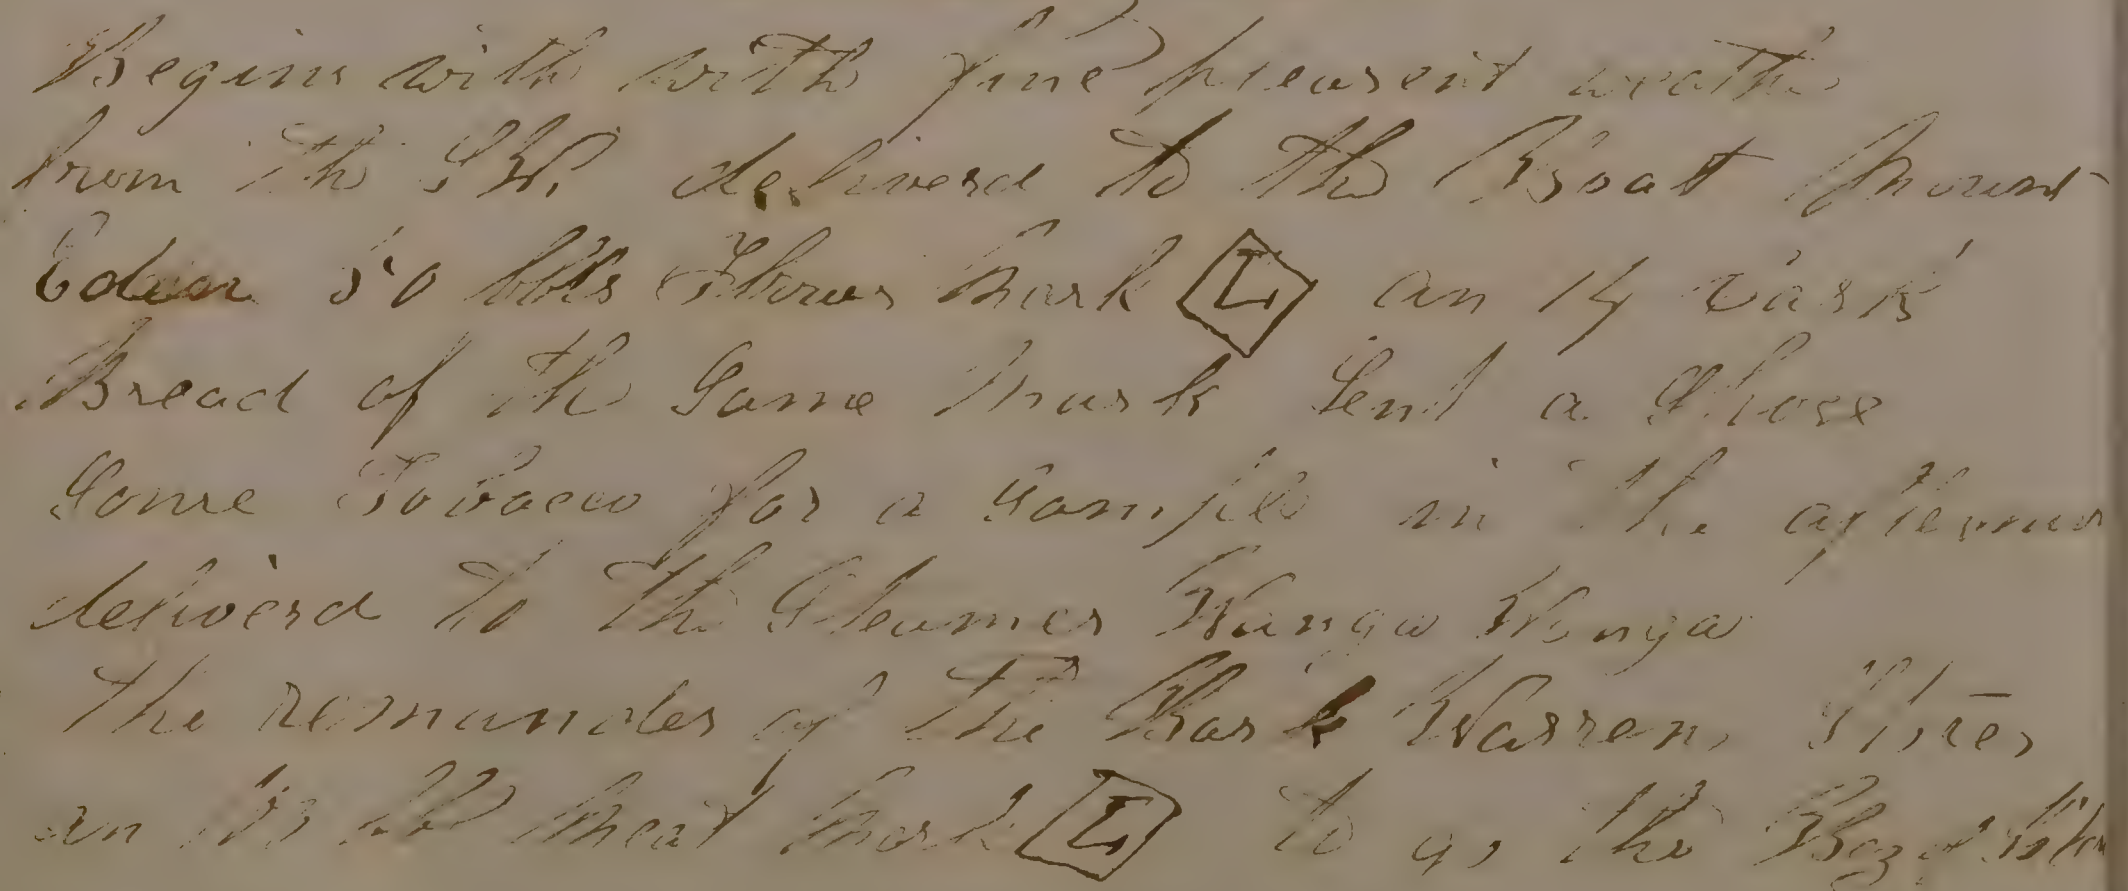 Begins with with fine pleasent weath
from the SW. deliverd to the Boat Mount
Eden 50 bbls Flower Mark L an 14 Cask
Bread of the Same Mark Sent a Shore
Some Tobacco for a Sample in the afternoo
deliverd to the Steamer Wanga Wanga
the remainder of the Bark Warren Stores
an bbl Meat Mark L to go the